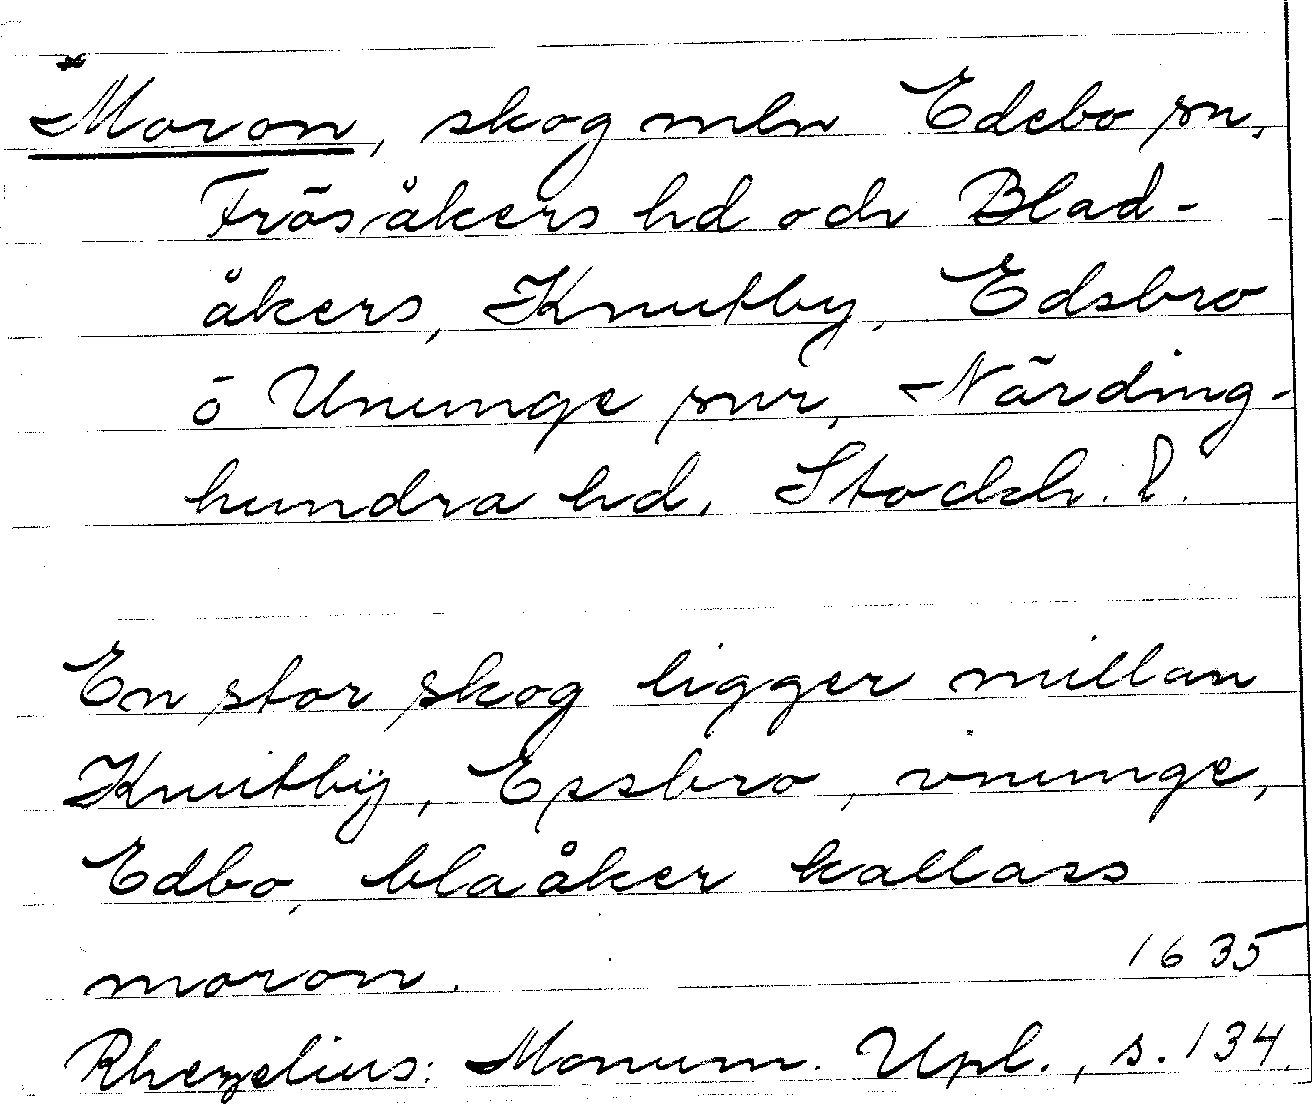 *Moron, skog mln Edebo sn,
Frösåkers hd och Blad-
åkers, Knutby, Edsbro
o Ununge snr, Närding-
hundra hd, Stockh. l.
En stor skog ligger millan
Knutbÿ, Essbro, vnunge,
Edbo, blaåker kallass
moron. 1635
Rhezelius: Monum. Upl., s. 134.